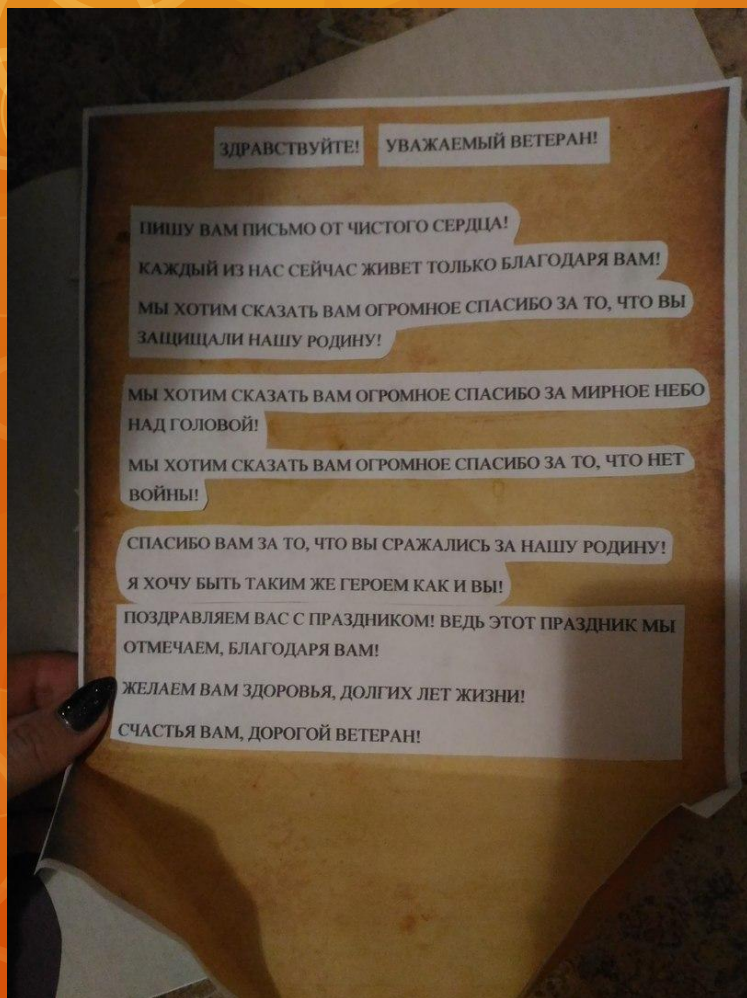 ЗДРАВСТВУЙТЕ! УВАЖАЕМЫЙ ВЕТЕРАН!
ПИШУ ВАМ ПИСЬМО ОТ ЧИСТОГО СЕРДЦА!
КАЖДЫЙ ИЗ НАС СЕЙЧАС ЖИВЕТ ТОЛЬКО БЛАГОДАРЯ ВАМ!
МЫ ХОТИМ СКАЗАТЬ ВАМ ОГРОМНОЕ СПАСИБО ЗА ТО, ЧТО ВЫ
ЗАЩИЩАЛИ НАШУ РОДИНУ!
МЫ ХОТИМ СКАЗАТЬ ВАМ ОГРОМНОЕ СПАСИБО ЗА МИРНОЕ НЕБО
НАД ГОЛОВОЙ!
МЫ ХОТИМ СКАЗАТЬ ВАМ ОГРОМНОЕ СПАСИБО ЗА ТО, ЧТО НЕТ
ВОЙНЫ!
СПАСИБО ВАМ ЗА ТО, ЧТО ВЫ СРАЖАЛИСЬ ЗА НАШУ РОДИНУ!
Я ХОЧУ БЫТЬ ТАКИМ ЖЕ ГЕРОЕМ КАК И ВЫ!
ПОЗДРАВЛЯЕМ ВАС С ПРАЗДНИКОМ! ВЕДЬ ЭТОТ ПРАЗДНИК МЫ
ОТМЕЧАЕМ, БЛАГОДАРЯ ВАМ!
ЖЕЛАЕМ ВАМ ЗДОРОВЬЯ, ДОЛГИХ ЛЕТ ЖИЗНИ!
СЧАСТЬЯ ВАМ, ДОРОГОЙ ВЕТЕРАН!